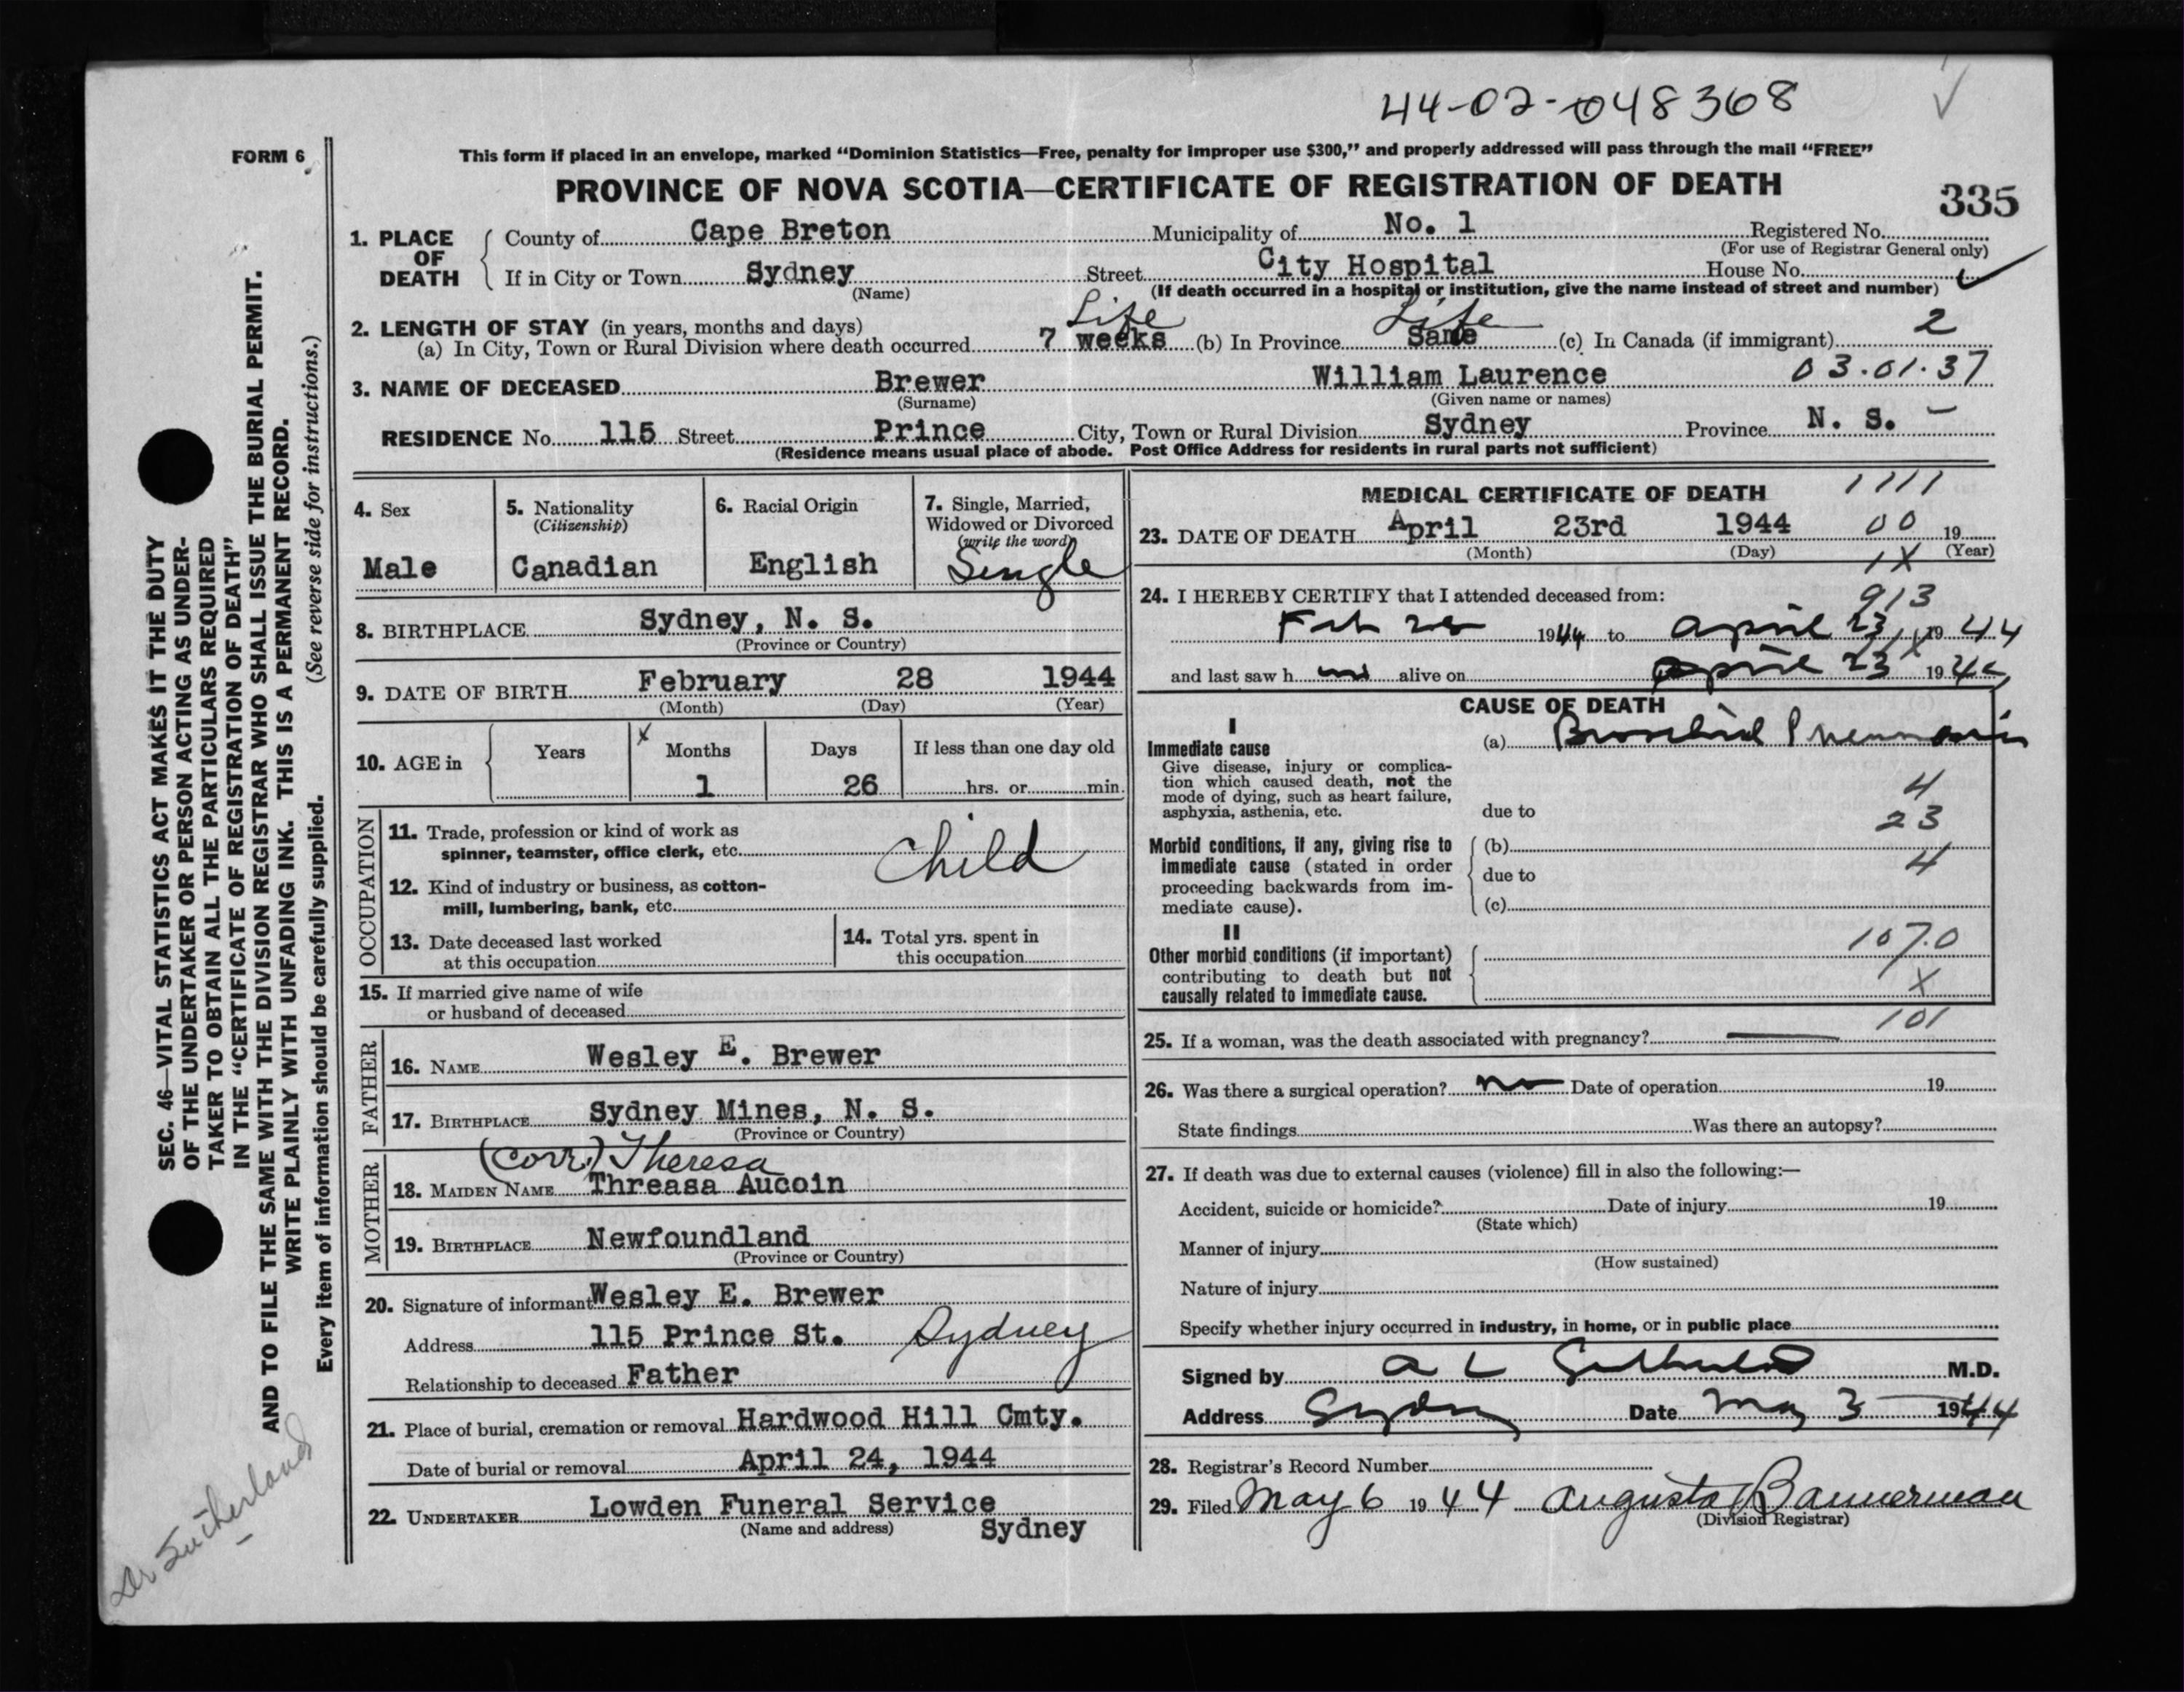 44-02-048368
FORM 6
This form if placed in an envelope, marked “Dominion Statistics—Free, penalty for improper use $300,” and properly addressed will pass through the mail “FREE”
PROVINCE OF NOVA SCOTIA—CERTIFICATE OF REGISTRATION OF DEATH
335
1. PLACE OF DEATH
County of Cape Breton Municipality of No. 1 Registered No.
(For use of Registrar General only)
If in City or Town Sydney Street City Hospital House No.
(Name) (If death occurred in a hospital or institution, give the name instead of street and number)
2. LENGTH OF STAY (in years, months and days) Life Life 2
(a) In City, Town or Rural Division where death occurred 7 weeks (b) In Province Same (c) In Canada (if immigrant)
3. NAME OF DECEASED Brewer William Laurence 03.01.37
(Surname) (Given name or names)
RESIDENCE No. 115 Street Prince City, Town or Rural Division Sydney Province N. S.
(Residence means usual place of abode. Post Office Address for residents in rural parts not sufficient)
4. Sex
Male
5. Nationality
(Citizenship)
Canadian
6. Racial Origin
English
7. Single, Married,
Widowed or Divorced
(write the word)
Single
8. BIRTHPLACE Sydney, N. S.
(Province or Country)
9. DATE OF BIRTH February 28 1944
(Month) (Day) (Year)
10. AGE in
Years Months Days If less than one day old
1 26 hrs. or min.
OCCUPATION
11. Trade, profession or kind of work as
spinner, teamster, office clerk, etc.
Child
12. Kind of industry or business, as cotton-
mill, lumbering, bank, etc.
13. Date deceased last worked
at this occupation
14. Total yrs. spent in
this occupation
15. If married give name of wife
or husband of deceased
FATHER
16. NAME Wesley E. Brewer
17. BIRTHPLACE Sydney Mines, N. S.
(Province or Country)
MOTHER
(corr.) Theresa
18. MAIDEN NAME Threasa Aucoin
19. BIRTHPLACE Newfoundland
(Province or Country)
20. Signature of informant Wesley E. Brewer
Address 115 Prince St. Sydney
Relationship to deceased Father
21. Place of burial, cremation or removal Hardwood Hill Cmty.
Date of burial or removal April 24, 1944
22. UNDERTAKER Lowden Funeral Service
(Name and address) Sydney
MEDICAL CERTIFICATE OF DEATH 1111
23. DATE OF DEATH April 23rd 1944 00 19
(Month) (Day) (Year)
1X
24. I HEREBY CERTIFY that I attended deceased from: 913
Feb 28 1944 to April 23 1944
and last saw h im alive on April 23 1944
CAUSE OF DEATH
I
Immediate cause
Give disease, injury or complica-
tion which caused death, not the
mode of dying, such as heart failure,
asphyxia, asthenia, etc.
(a) Bronchial Pneumonia
4
due to
23
Morbid conditions, if any, giving rise to
immediate cause (stated in order
proceeding backwards from im-
mediate cause).
(b)
4
due to
(c)
II
Other morbid conditions (if important)
contributing to death but not
causally related to immediate cause.
107.0
X
101
25. If a woman, was the death associated with pregnancy?
26. Was there a surgical operation? no Date of operation 19
State findings Was there an autopsy?
27. If death was due to external causes (violence) fill in also the following:—
Accident, suicide or homicide? Date of injury 19
(State which)
Manner of injury
(How sustained)
Nature of injury
Specify whether injury occurred in industry, in home, or in public place
Signed by A L Sutherland M.D.
Address Sydney Date May 3 1944
28. Registrar's Record Number
29. Filed May 6 1944 Augusta Bannerman
(Division Registrar)
SEC. 46—VITAL STATISTICS ACT MAKES IT THE DUTY
OF THE UNDERTAKER OR PERSON ACTING AS UNDER-
TAKER TO OBTAIN ALL THE PARTICULARS REQUIRED
IN THE “CERTIFICATE OF REGISTRATION OF DEATH”
AND TO FILE THE SAME WITH THE DIVISION REGISTRAR WHO SHALL ISSUE THE BURIAL PERMIT.
WRITE PLAINLY WITH UNFADING INK. THIS IS A PERMANENT RECORD.
Every item of information should be carefully supplied. (See reverse side for instructions.)
Dr Sutherland